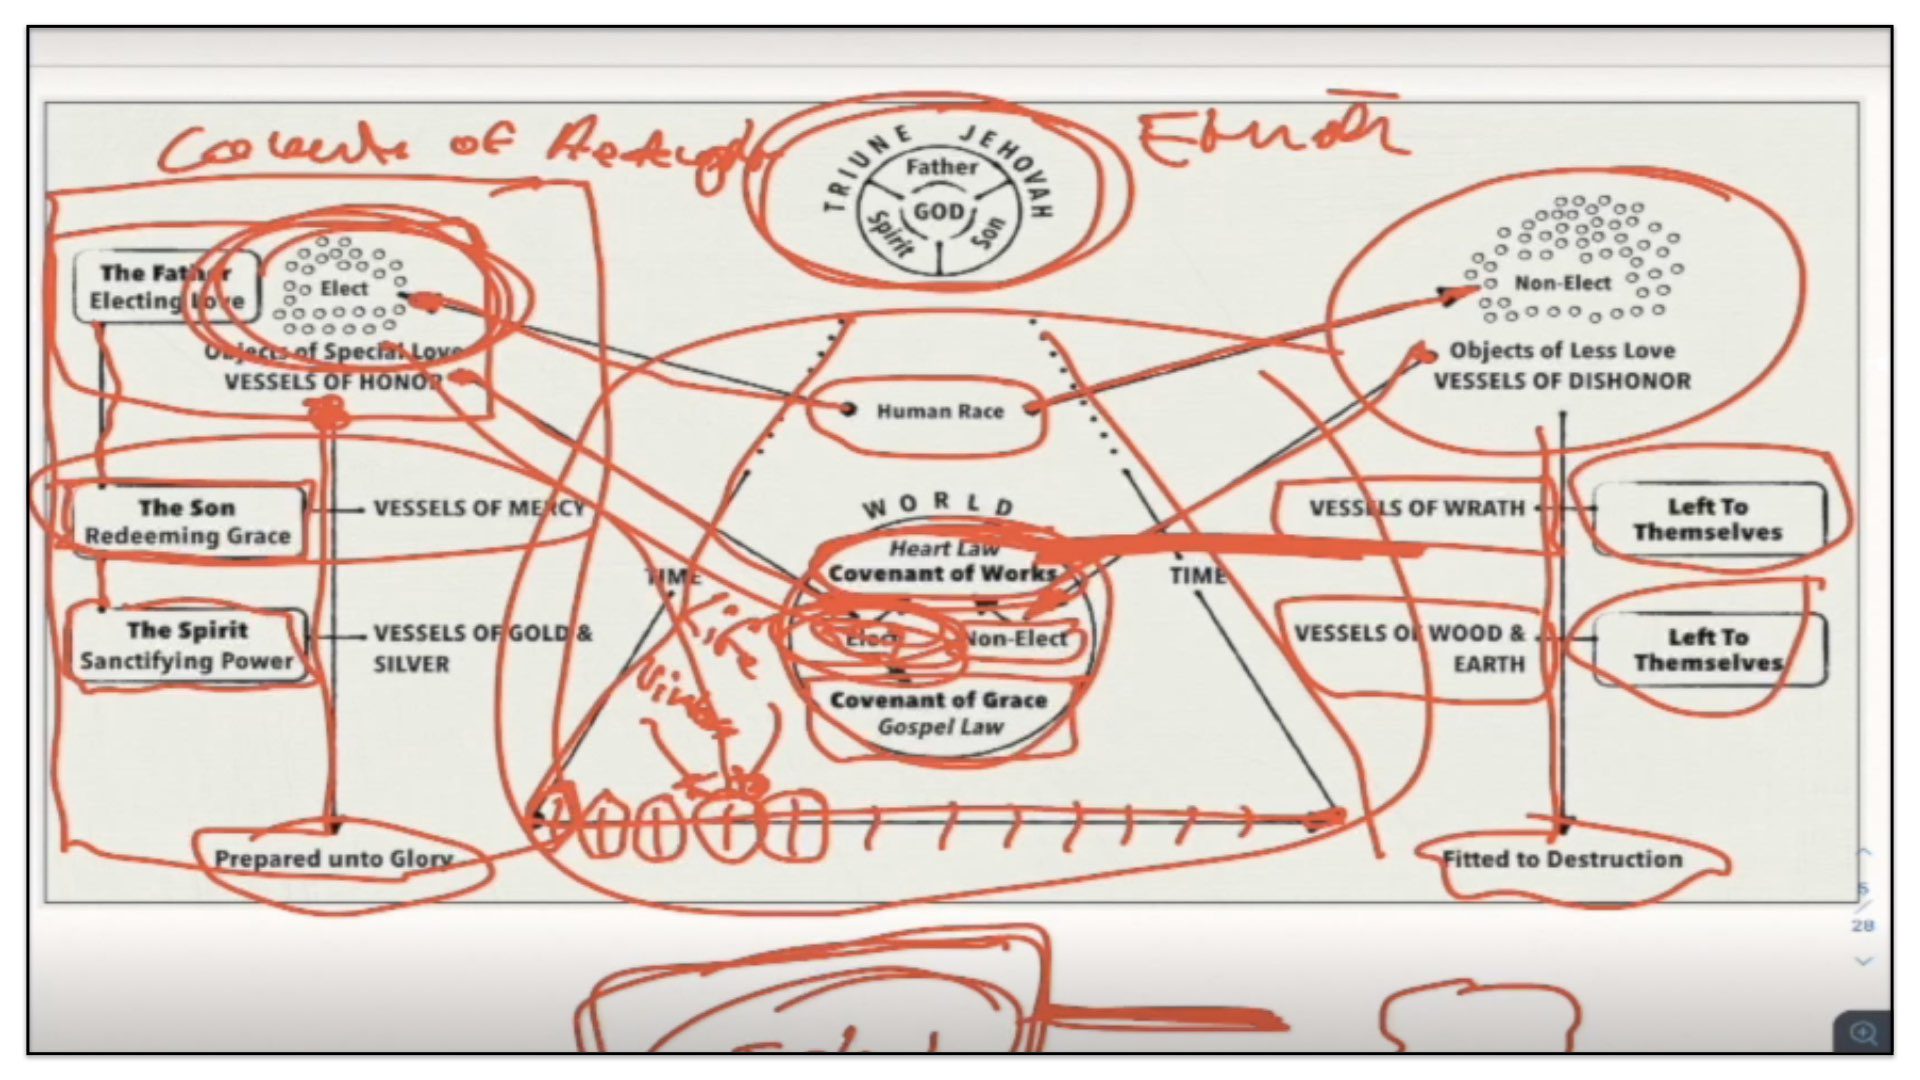 TRIUNE JEHOVAH
Father
GOD
Spirit
Son
The Father
Electing Love
Elect
Objects of Special Love
VESSELS OF HONOR
Human Race
Non-Elect
Objects of Less Love
VESSELS OF DISHONOR
The Son
Redeeming Grace
VESSELS OF MERCY
WORLD
Heart Law
Covenant of Works
Elect
Non-Elect
Covenant of Grace
Gospel Law
TIME
TIME
VESSELS OF WRATH
Left To
Themselves
The Spirit
Sanctifying Power
VESSELS OF GOLD &
SILVER
VESSELS OF WOOD &
EARTH
Left To
Themselves
Prepared unto Glory
Fitted to Destruction
5
/
28
of